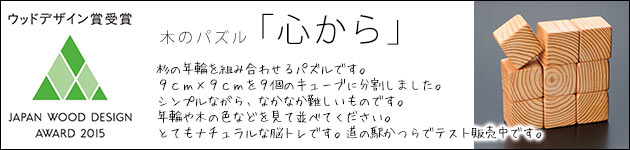 ウッドデザイン賞受賞
JAPAN WOOD DESIGN
AWARD 2015
木のパズル「心から」
杉の年輪を組み合わせるパズルです。
9cm×9cmを9個のキューブに分割しました。
シンプルながら、なかなか難しいものです。
年輪や木の色などを見て並べてください。
とてもナチュラルな脳トレです。道の駅かつらでテスト販売中です。